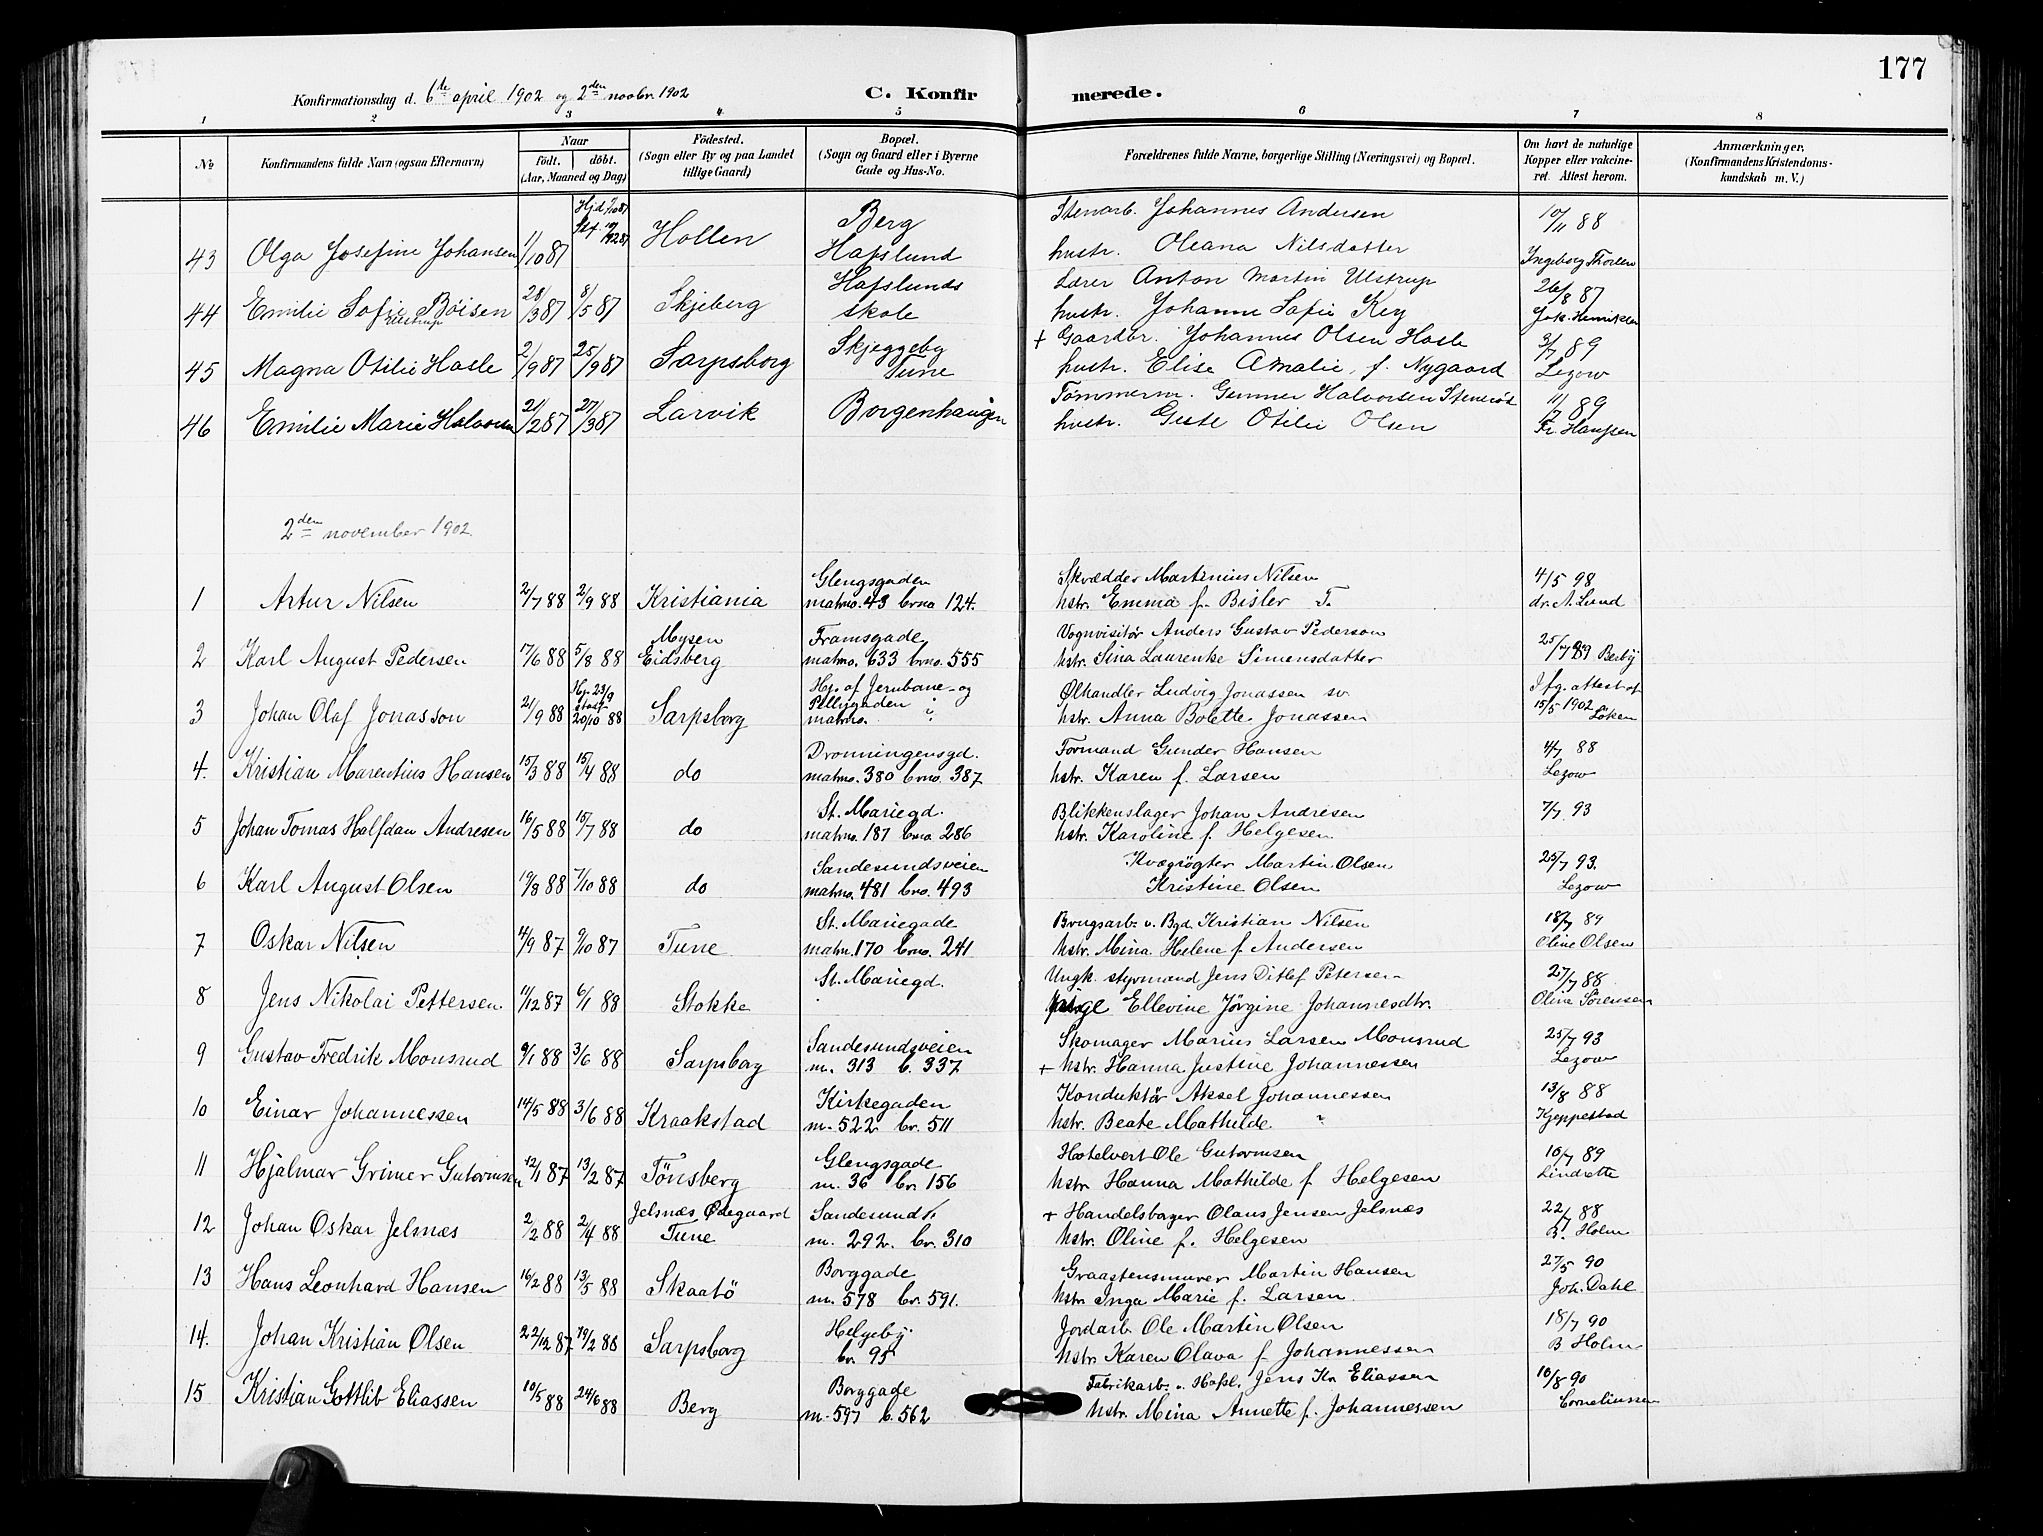 177
Konfirmationsdag d. 6te april 1902 og 2den novbr. 1902
C. Konfirmerede.
1 2 3 4 5 6 7 8
No
Konfirmandens fulde Navn (ogsaa Efternavn)
Naar
födt. döbt.
(Aar, Maaned og Dag)
Födested.
(Sogn eller By og paa Landet
tillige Gaard)
Bopæl.
(Sogn og Gaard eller i Byerne
Gade og Hus-No.
Forældrenes fulde Navne, borgerlige Stilling (Næringsvei) og Bopæl.
Om havt de naturlige
Kopper eller vakcine-
ret. Attest herom.
Anmærkninger,
(Konfirmandens Kristendoms-
kundskab m. V.)
43 Olga Josefine Johansen 1/10 87 Hollen
Berg
Hafslund
Stenarb. Johannes Andersen
hustr. Oleana Nilsdatter
10/11 88
Ingeborg Thorsen
44 Emilie Sofie Böisen 28/3 87 8/5 87 Skjeberg
Ulstrup
Hafslunds
skole
Lærer Anton Martin Ulstrup
hustr. Johanne Sofie Key
26/8 87
Joh. Henriksen
45 Magna Otilie Hasle 2/9 87 25/9 87 Sarpsborg
Skjeggeby
Tune
+ Gaardbr. Johannes Olsen Hasle
hustr. Elise Amalie, f. Nygaard
3/7 89
Lezow
46 Emilie Marie Halvorsen 21/2 87 27/3 87 Larvik
Borgenhaugen
Tömmerm. Gunner Halvorsen
hustr. Guste Otilie Olsen
11/7 89
Fr. Hanssen
2den november 1902
1 Artur Nilsen 2/7 88 2/9 88 Kristiania
Glengsgaden
matno. 43 brno 124.
Skrædder Martinius Nilsen
hstr. Emma f. Bisler
4/5 98
dr. A. Lund
2 Karl August Pedersen 17/6 88 5/8 88
Mysen
Eidsberg
Framsgade
matno. 633 brno. 555
Vognvisitör Anders Gustav Pederson
hstr. Sina Laurenke Simensdatter
25/7 89 Berby
3 Johan Olaf Jonasson 21/9 88 Hj. 23/9 stadf. 20/10 88 Sarpsborg
Hj. af Jernbane- og
Pellygaden
matno.
Ølhandler Ludvig Jonassen sv.
hstr. Anna Bolette Jonassen
Ifg. attest af
15/5 1902 Löken
4. Kristian Marentius Hansen 15/3 88 15/4 88 do
Dronningensgd.
matno. 380 brno. 387
Formand Gunder Hansen
hstr. Karen f. Larsen
4/7 88
Lezow
5 Johan Tomas Halfdan Andresen 16/5 88 15/7 88 do
St. Mariegd.
matno. 187 brno. 286
Blikkenslager Johan Andresen
hstr. Karoline f. Helgesen
7/7 93
6 Karl August Olsen 19/8 88 7/10 88 do
Sandesundsveien
matno. 481 brno. 493
Kvægrögter Martin Olsen
Kristine Olsen
25/7 93.
Lezow
7 Oskar Nilsen 14/9 87 9/10 87 Tune
St. Mariegade
matn. 170 brno. 241
Brugsarb. v. Bgd. Kristian Nilsen
hstr. Mina Helene f. Andersen
18/7 89
Oline Olsen
8 Jens Nikolai Pettersen 11/12 87 6/1 88 Stokke
St. Mariegd.
Ungk. styrmand Jens Ditlef Petersen
pige Ellevine Jørgine Johannesdtr.
27/7 88
Oline Sörensen
9 Gustav Fredrik Monsrud 9/1 88 3/6 88 Sarpsborg
Sandesundsveien
m. 313 b. 337
Skomager Marius Larsen Monsrud
+ hstr. Hanna Justine Johannessen
25/7 93
Lezow
10 Einar Johannessen 14/5 88 3/6 88 Kraakstad
Kirkegaden
m. 522 br. 511
Konduktör Aksel Johannessen
hstr. Beate Mathilde ?
13/8 88
Kjeppestad
11 Hjalmar Grimer Gutormsen 12/1 87 13/2 87 Tönsberg
Glengsgade
m. 36 br. 156
Hotelvert Ole Gutormsen
hstr. Hanna Mathilde f. Helgesen
10/7 89
12 Johan Oskar Jelsnæs 2/2 88 2/4 88
Jelsnæs Ødegaard
Tune
Sandesundv.
m. 292. br. 310
+ Handelsborger Olaus Jensen Jelsnæs
hstr. Oline f. Helgesen
22/7 88
B. Holm
13 Hans Leonhard Hansen 16/2 88 13/5 88 Skaatö
Borggade
m. 578 br. 591.
Graastensmurer Martin Hansen
hstr. Inga Marie f. Larsen
27/5 90
Joh. Dahl
14. Johan Kristian Olsen 22/12 87 19/2 88 Sarpsborg
Helgeby
br. 95
Jordarb. Ole Martin Olsen
hstr. Karen Olava f. Johannessen
18/7 90
B Holm
15 Kristian Gottlib Eliassen 10/5 88 24/6 88 Berg
Borggade
m. 597 b. 562
Fabrikarb. v. Hafsl. Jens Kr. Eliassen
hstr. Mina Annette f. Johannessen
10/8 90
Corneliussen